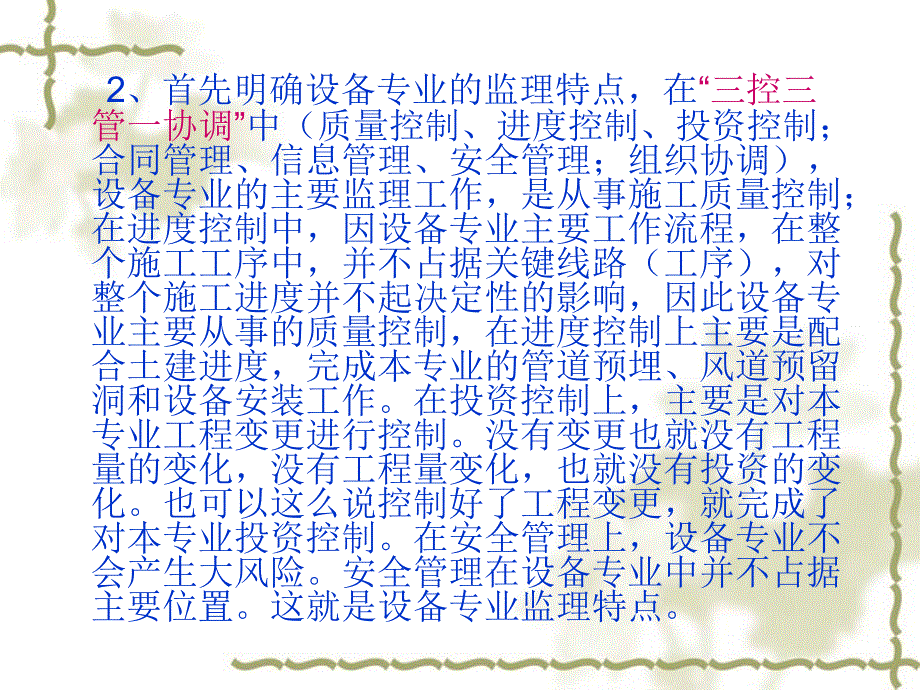 2、首先明确设备专业的监理特点，在“三控三
管一协调”中（质量控制、进度控制、投资控制；
合同管理、信息管理、安全管理；组织协调），
设备专业的主要监理工作，是从事施工质量控制；
在进度控制中，因设备专业主要工作流程，在整
个施工工序中，并不占据关键线路（工序），对
整个施工进度并不起决定性的影响，因此设备专
业主要从事的质量控制，在进度控制上主要是配
合土建进度，完成本专业的管道预埋、风道预留
洞和设备安装工作。在投资控制上，主要是对本
专业工程变更进行控制。没有变更也就没有工程
量的变化，没有工程量变化，也就没有投资的变
化。也可以这么说控制好了工程变更，就完成了
对本专业投资控制。在安全管理上，设备专业不
会产生大风险。安全管理在设备专业中并不占据
主要位置。这就是设备专业监理特点。